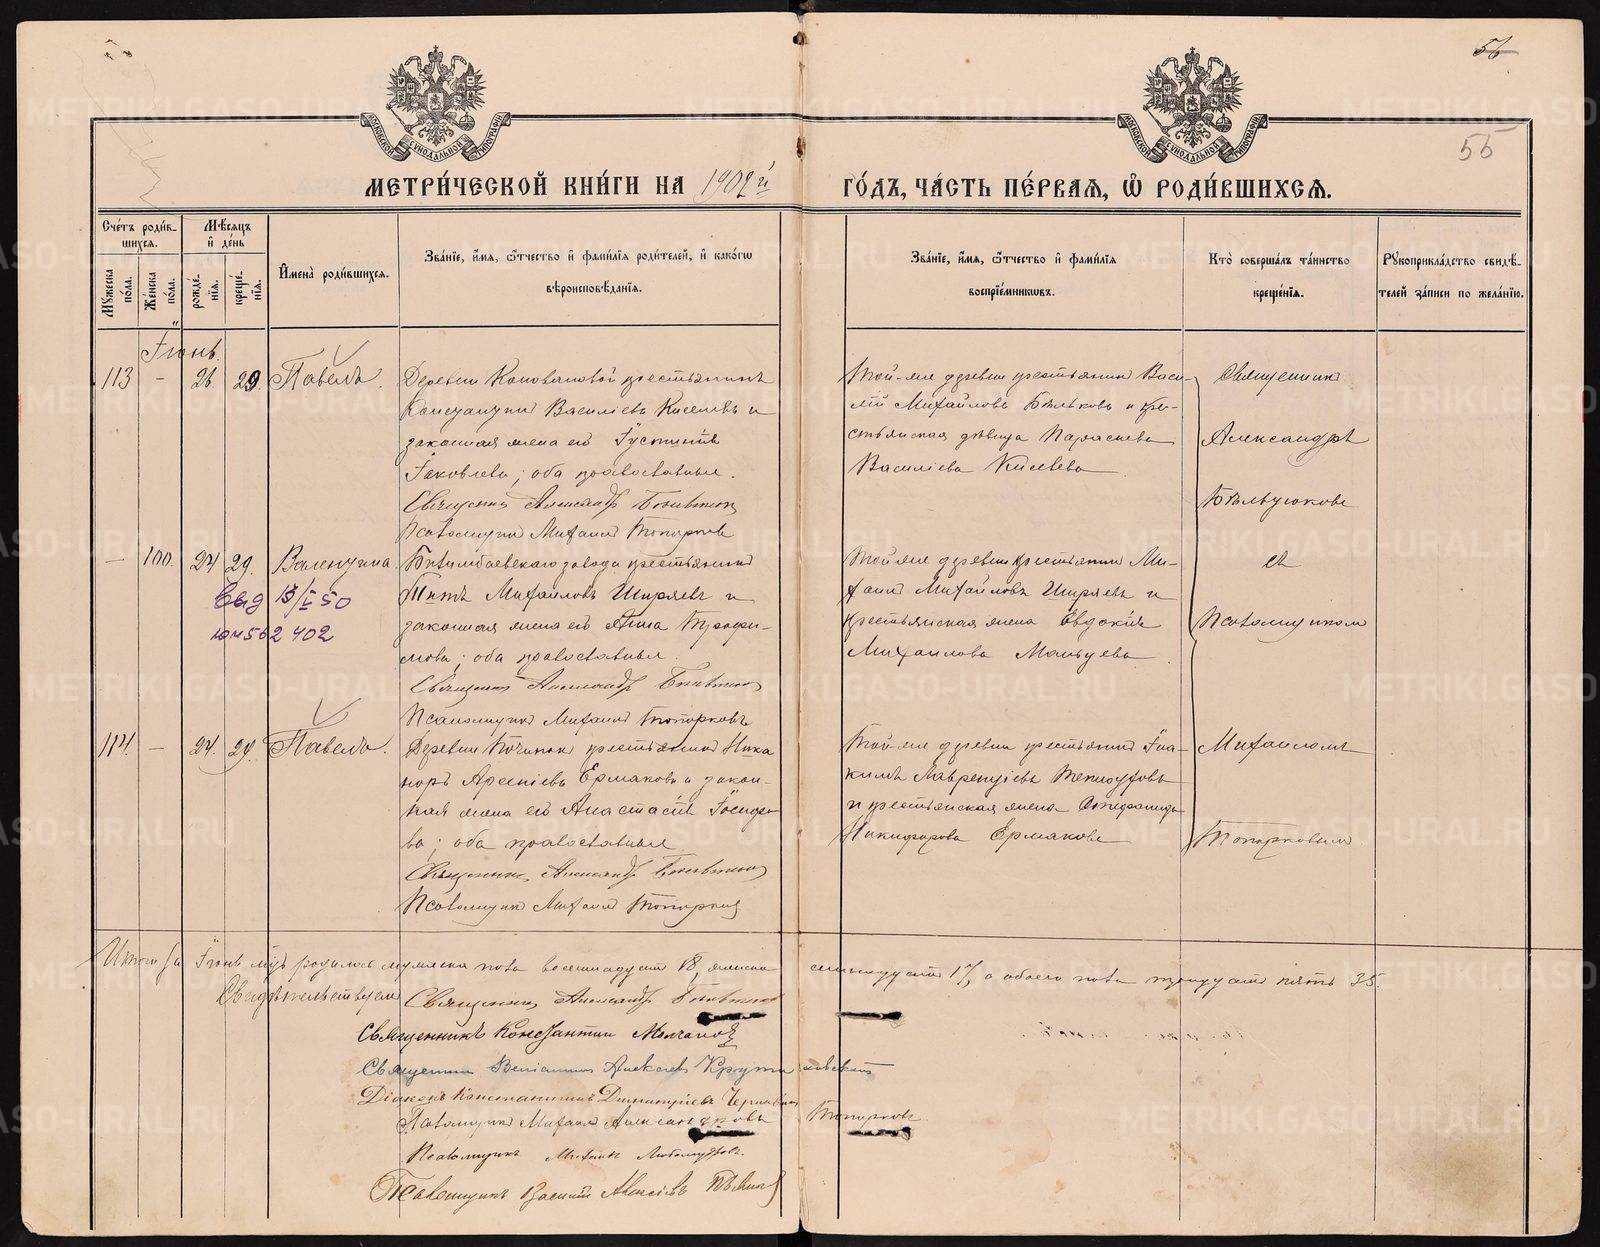 56
55
МЕТРИ́ЧЕСКОЙ КНИ́ГИ НА 1902й ГО́ДЪ, ЧА́СТЬ ПЕ́РВАЯ, Ѿ РОДИ́ВШИХСЯ.
Сче́тъ роди́в-
шихся.
Мꙋжеска пола.
Же́нска пола.
Мѣ́сяцъ
и҆ де́нь
рожде́-
нїя.
креще́-
нїя.
И҆мена̀ роди́вшихся.
Зва́нїе, и҆́мя, ѻ҆́тчество и҆ фами́лїя роди́телей, и҆ како́гѡ
вѣроисповѣ́данїя.
Зва́нїе, и҆́мя, ѻ҆́тчество и҆ фами́лїя
воспрїе́мникѡвъ.
Кто̀ соверша́лъ та́инство
креще́нїя.
Рꙋкоприкла́дство свидѣ́-
телей за́писи по жела́нїю.
Іюнь.
113 — 26 29 Павелъ.
Деревни Коноваловой крестьянинъ
Василіевъ Киселевъ и
законная жена его Іустинія
Іаковлева; оба православные.
Священник Александр
Псаломщик Михаил Топорков
Той-же деревни крестьянин Васи-
лій Михайловъ Бѣльковъ и кре-
стьянская дѣвица Параскева
Василіева Киселева
Священник
Александръ
— 100. 24 29. Валентина
Свид 13/I 50
юн 562402
Билимбаевскаго завода крестьянин
Титъ Михайловъ Ширяевъ и
законная жена его Анна Трофи-
мова; оба православные.
Священник Александр
Псаломщик Михаил Топорковъ
Той-же деревни крестьянин Ми-
хаил Михайловъ Ширяевъ и
крестьянская жена Евдокія
Михаилова Мальцева
съ
Псаломщиком
114. — 24. 29. Павелъ.
Деревни Починок крестьянин Ника
норъ Арсеніевъ Ермаковъ и закон-
ная жена его Анастасія Іосифо
ва; оба православные
Священникъ Александр
Псаломщик Михаил Топорков
Той-же деревни крестьянин Іоа-
кимъ Лаврентіевъ
и крестьянская жена
Никифорова Ермакова
Михаиломъ
Топорковымъ
Итого за Іюнь м-цъ родилось мужеска пола восемнадцать 18, женска семнадцать 17, а обоего пола тридцать пять 35.
Свидѣтельствуем
Священникъ Александр
Священникъ Константин Молчанов
Священник Веніамин Алексѣев
Діаконъ Константинъ Димитріевъ
Псаломщик Михаил Александровъ Топорковъ
Псаломщикъ Михаил Любомудровъ.
Псаломщикъ Василій Алексѣевъ